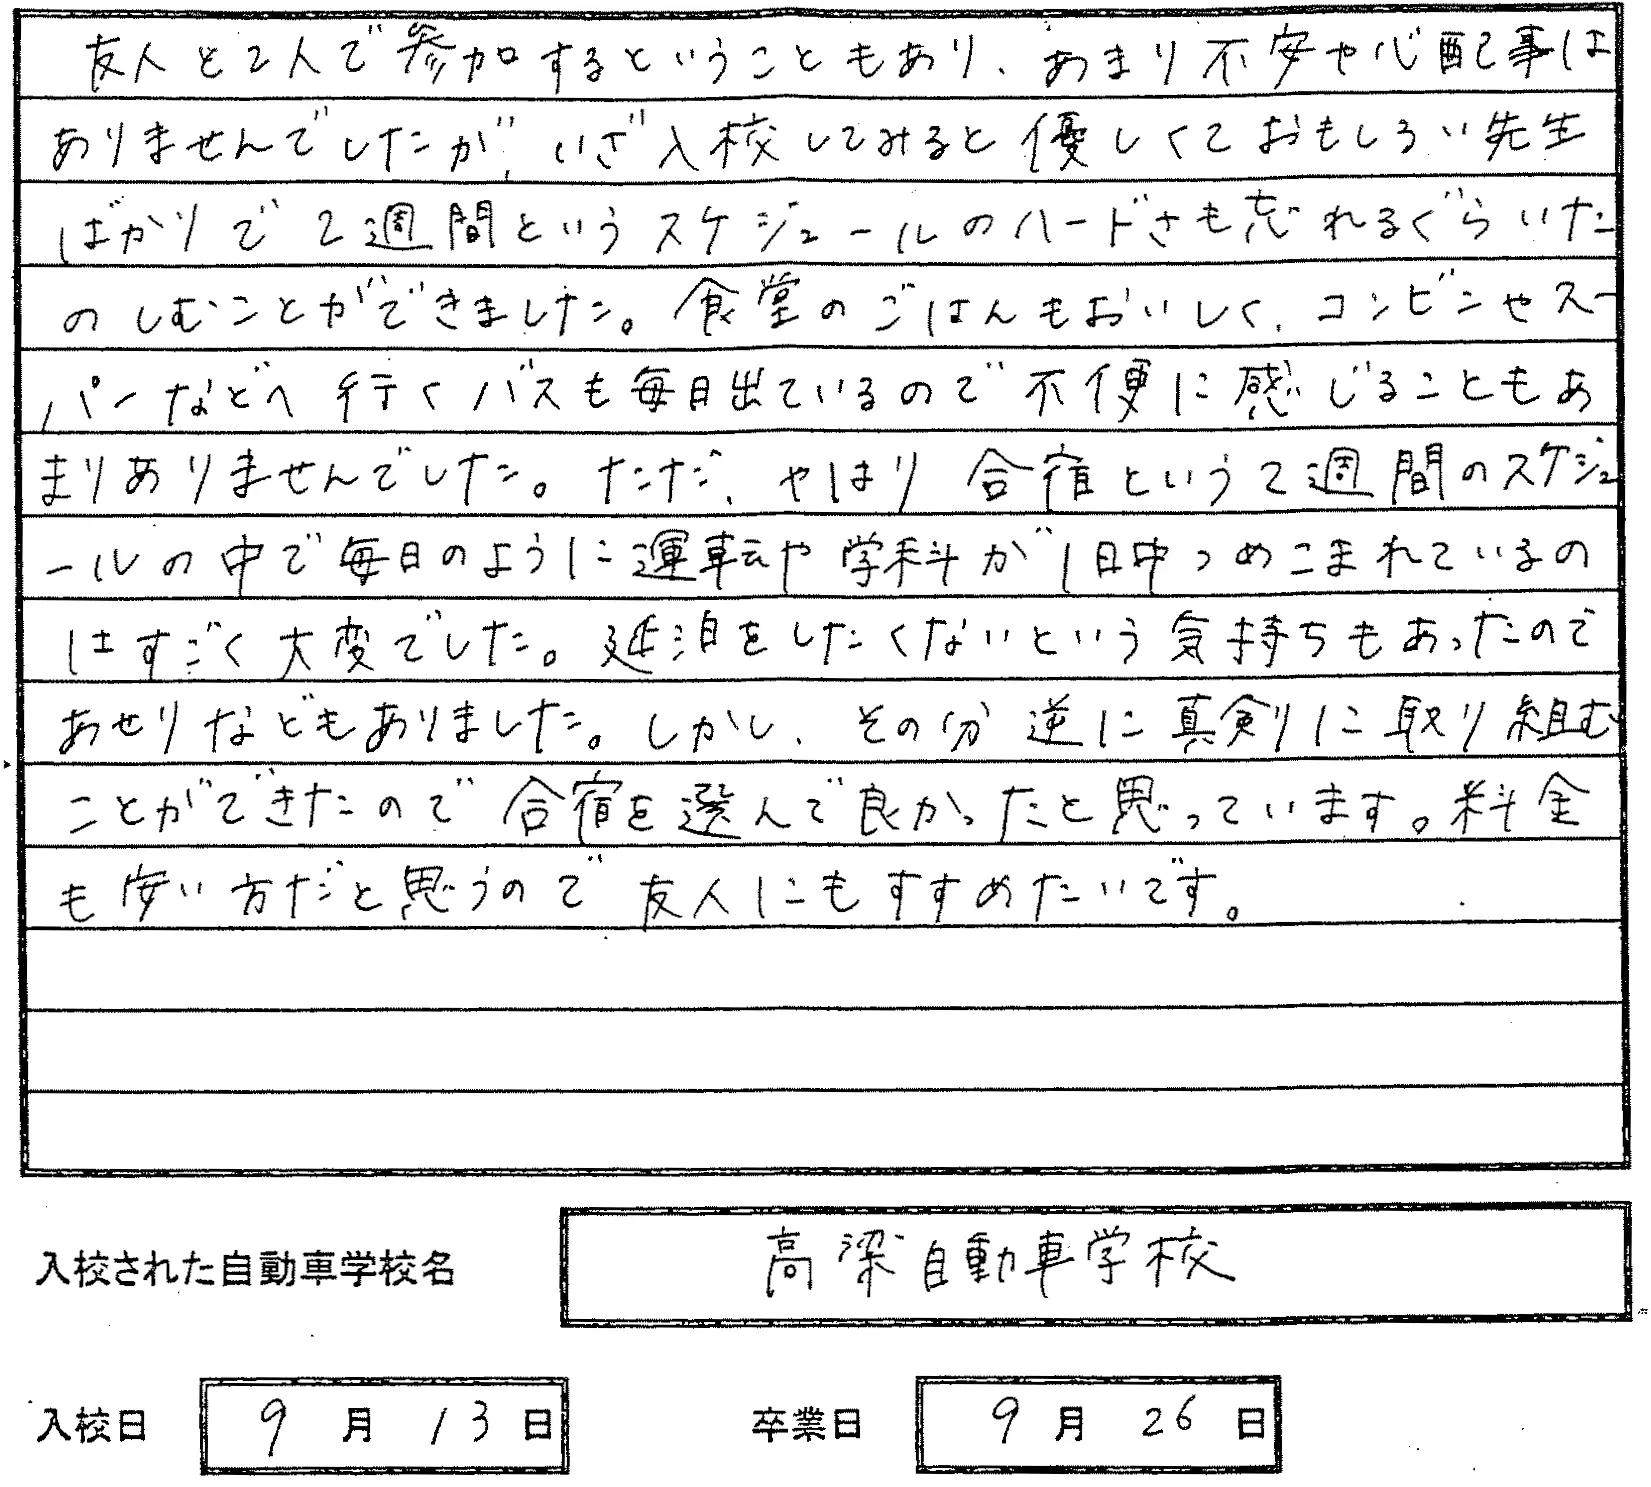 友人と2人で参加するということもあり、あまり不安や心配事は
ありませんでしたが、いざ入校してみると優しくておもしろい先生
ばかりで2週間というスケジュールのハードさも忘れるぐらいた
のしむことができました。食堂のごはんもおいしく、コンビニやスー
パーなどへ行くバスも毎日出ているので不便に感じることもあ
まりありませんでした。ただ、やはり合宿という2週間のスケジュ
ールの中で毎日のように運転や学科が1日中つめこまれているの
はすごく大変でした。延泊をしたくないという気持ちもあったので
あせりなどもありました。しかし、その分逆に真剣に取り組む
ことができたので合宿を選んで良かったと思っています。料金
も安い方だと思うので友人にもすすめたいです。
入校された自動車学校名 高梁自動車学校
入校日 9月13日 卒業日 9月26日